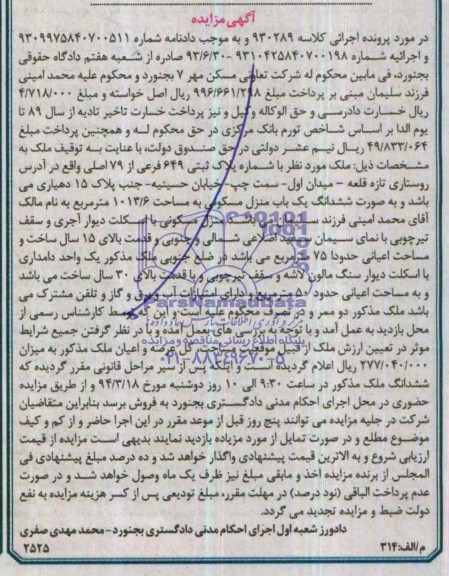 آگهی مزایده
در مورد پرونده اجرائی کلاسه ۹۳۰۲۸۹ و به موجب دادنامه شماره ۹۳۰۹۹۷۵۸۴۰۷۰۰۵۱۱
و اجرائیه شماره ۹۳۱۰۴۲۵۸۴۰۷۰۰۱۹۸ -۹۳/۶/۳۰ صادره از شعبه هفتم دادگاه حقوقی
بجنورد، فی مابین محکوم له شرکت تعاونی مسکن مهر ۷ بجنورد و محکوم علیه محمد امینی
فرزند سلیمان مبنی بر پرداخت مبلغ ۹۹۶/۶۶۱/۲۹۸ ریال اصل خواسته و مبلغ ۴/۷۱۸/۰۰۰
ریال خسارت دادرسی و حق الوکاله وکیل و نیز پرداخت خسارت تاخیر تادیه از سال ۸۹ تا
یوم الدا بر اساس شاخص تورم بانک مرکزی در حق محکوم له و همچنین پرداخت مبلغ
۴۹/۸۳۳/۰۶۴ ریال نیم عشر دولتی در حق صندوق دولت، با عنایت به توقیف ملک به
مشخصات ذیل: ملک مورد نظر با شماره پلاک ثبتی ۶۴۹ فرعی از ۷۹ اصلی واقع در آدرس
روستاری تازه قلعه - میدان اول- سمت چپ- خیابان حسینیه- جنب پلاک ۱۵ دهیاری می
باشد و به صورت ششدانگ یک باب منزل مسکونی به مساحت ۱۰۱۳/۶ مترمربع به نام مالک
آقای محمد امینی فرزند سلیمان می باشد منزل مسکونی با اسکلت دیوار آجری و سقف
تیرچوبی با نمای سیمان سفید اضلاعی شمالی و جنوبی و قدمت بالای ۱۵ سال ساخت و
مساحت اعیانی حدودا ۷۵ مترمربع می باشد در ضلع جنوبی ملک مذکور یک واحد دامداری
با اسکلت دیوار سنگ مالون لاشه و سقف تیرچوبی و با قدمت بالای ۳۰ سال ساخت می باشد
و به مساحت اعیانی حدود ۵۰ مترمربع و دارای امتیازات آب و برق و گاز و تلفن مشترک می
باشد ملک مذکور دو ممر و در تصرف محکوم علیه است و این که توسط کارشناس رسمی از
محل بازدید به عمل آمد و با توجه به بررسی های بعمل آمده و با در نظر گرفتن جمیع شرایط
موثر در تعیین ارزش ملک از قبیل موقعیت و تعیین کل عرصه و اعیان ملک مذکور به میزان
۲۷۷/۰۴۰/۰۰۰ ریال اعلام گردیده است و اینکه پس از سیر مراحل قانونی مقرر گردیده که
ششدانگ ملک مذکور در ساعت ۹:۳۰ الی ۱۰ روز دوشنبه مورخ ۹۴/۳/۱۸ و از طریق مزایده
حضوری در محل اجرای احکام مدنی دادگستری بجنورد به فروش برسد بنابراین متقاضیان
شرکت در جلیه مزایده می توانند پنج روز قبل از موعد مقرر در این اجرا حاضر و از کم و کیف
موضوع مطلع و در صورت تمایل از مورد مزیاده بازدید نمایند بدیهی است مزایده از قیمت
ارزیابی شروع و به الاترین قیمت پیشنهادی واگذار خواهد شد و ده درصد مبلغ پیشنهادی فی
المجلس از برنده مزایده اخذ و مابقی مبلغ نیز ظرف یک ماه وصول خواهد شد و در صورت
عدم پرداخت الباقی (نود درصد) در مهلت مقرر، مبلغ تودیعی پس از کسر هزینه مزایده به نفع
دولت ضبط و مزایده تجدید می گردد.
دادورز شعبه اول اجرای احکام مدنی دادگستری بجنورد- محمد مهدی صفری
م/الف:۳۱۴
۲۵۲۵
پایگاه اطلاع رسانی مناقصه و مزایده
۰۲۱-۸۸۳۴۹۶۷۰-۵